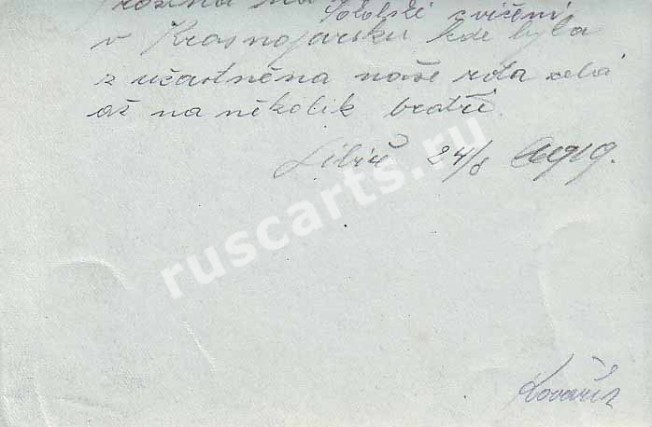 na Sokolské zvičení
v Krasnojarsku kde byla
zučastněna naše rota celá
až na několik bratří.
Sibiř 24/8 1919.
ruscarts.ru
Kovařík